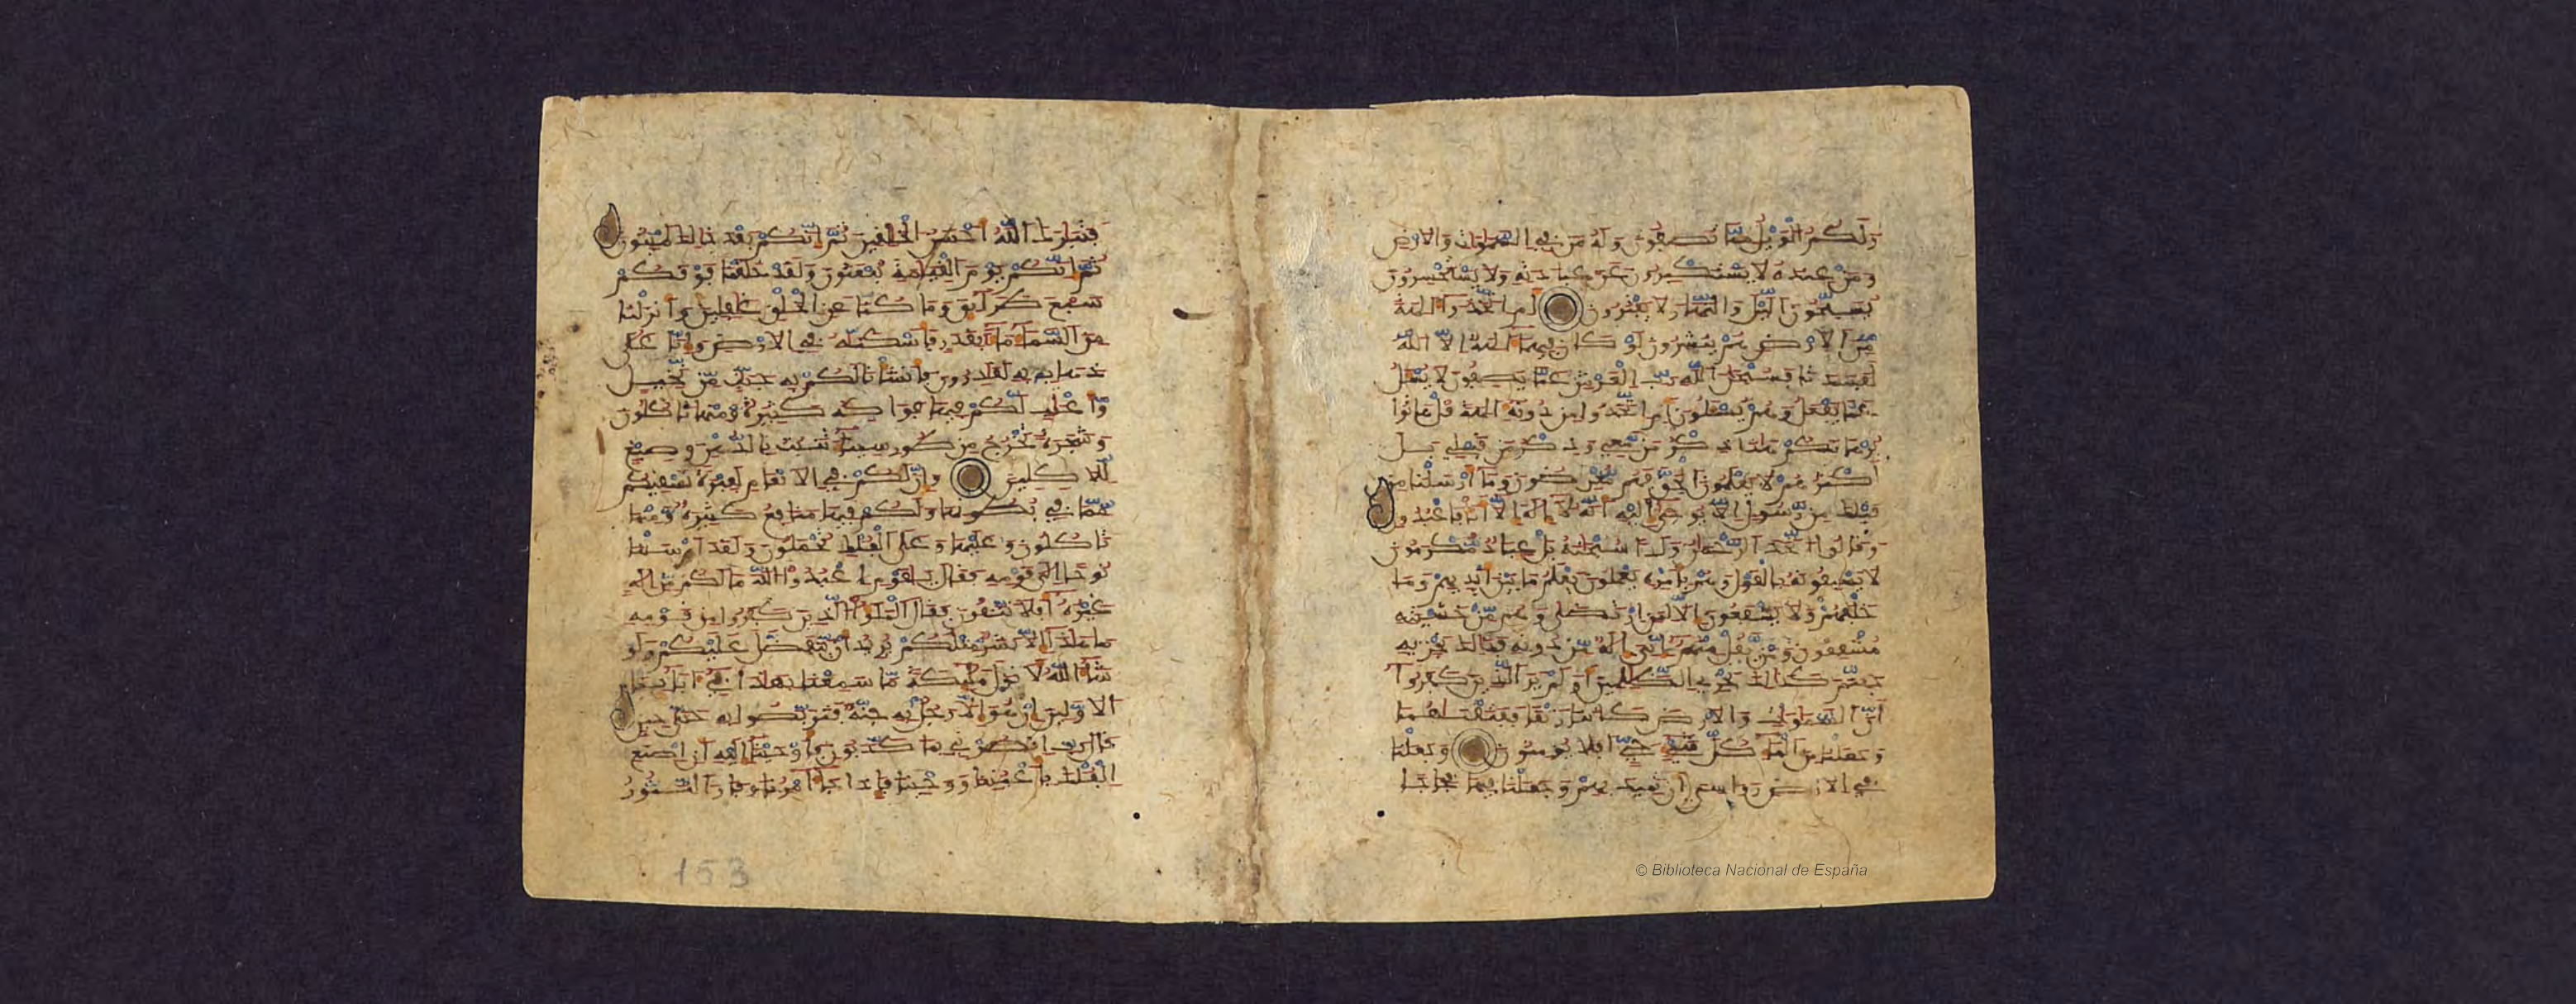 ولكم الويل مما تصفون وله من في السموات والارض
ومن عنده لا يستكبرون عن عبادته ولا يستحسرون
يسبحون اليل والنهار لا يفترون ام اتخذوا الهة
من الارض هم ينشرون لو كان فيهما الهة الا الله
لفسدتا فسبحن الله رب العرش عما يصفون لا يسل
عما يفعل وهم يسلون ام اتخذوا من دونه الهة قل هاتوا
برهانكم هذا ذكر من معي وذكر من قبلي بل
اكثرهم لا يعلمون الحق فهم معرضون وما ارسلنا من
قبلك من رسول الا يوحى اليه انه لا اله الا انا فاعبدون
وقالوا اتخذ الرحمن ولدا سبحنه بل عباد مكرمون
لا يسبقونه بالقول وهم بامره يعملون يعلم ما بين ايديهم وما
خلفهم ولا يشفعون الا لمن ارتضى وهم من خشيته
مشفقون ومن يقل منهم اني اله من دونه فذلك نجزيه
جهنم كذلك نجزي الظلمين اولم ير الذين كفروا
ان السموات والارض كانتا رتقا ففتقنهما
وجعلنا من الماء كل شيء حي افلا يومنون وجعلنا
في الارض رواسي ان تميد بهم وجعلنا فيها فجاجا
فتبرك الله احسن الخلقين ثم انكم بعد ذلك لميتون
ثم انكم يوم القيمة تبعثون ولقد خلقنا فوقكم
سبع طرايق وما كنا عن الخلق غفلين وانزلنا
من السماء ماء بقدر فاسكنه في الارض وانا على
ذهاب به لقدرون فانشانا لكم به جنت من نخيل
واعنب لكم فيها فواكه كثيرة ومنها تاكلون
وشجرة تخرج من طور سيناء تنبت بالدهن وصبغ
للاكلين وان لكم في الانعم لعبرة نسقيكم
مما في بطونها ولكم فيها منافع كثيرة ومنها
تاكلون وعليها وعلى الفلك تحملون ولقد ارسلنا
نوحا الى قومه فقال يقوم اعبدوا الله ما لكم من اله
غيره افلا تتقون فقال الملؤا الذين كفروا من قومه
ما هذا الا بشر مثلكم يريد ان يتفضل عليكم ولو
شاء الله لانزل مليكة ما سمعنا بهذا في اباينا
الاولين ان هو الا رجل به جنة فتربصوا به حتى حين
قال رب انصرني بما كذبون فاوحينا اليه ان اصنع
الفلك باعيننا ووحينا فاذا جاء امرنا وفار التنور
153
© Biblioteca Nacional de España